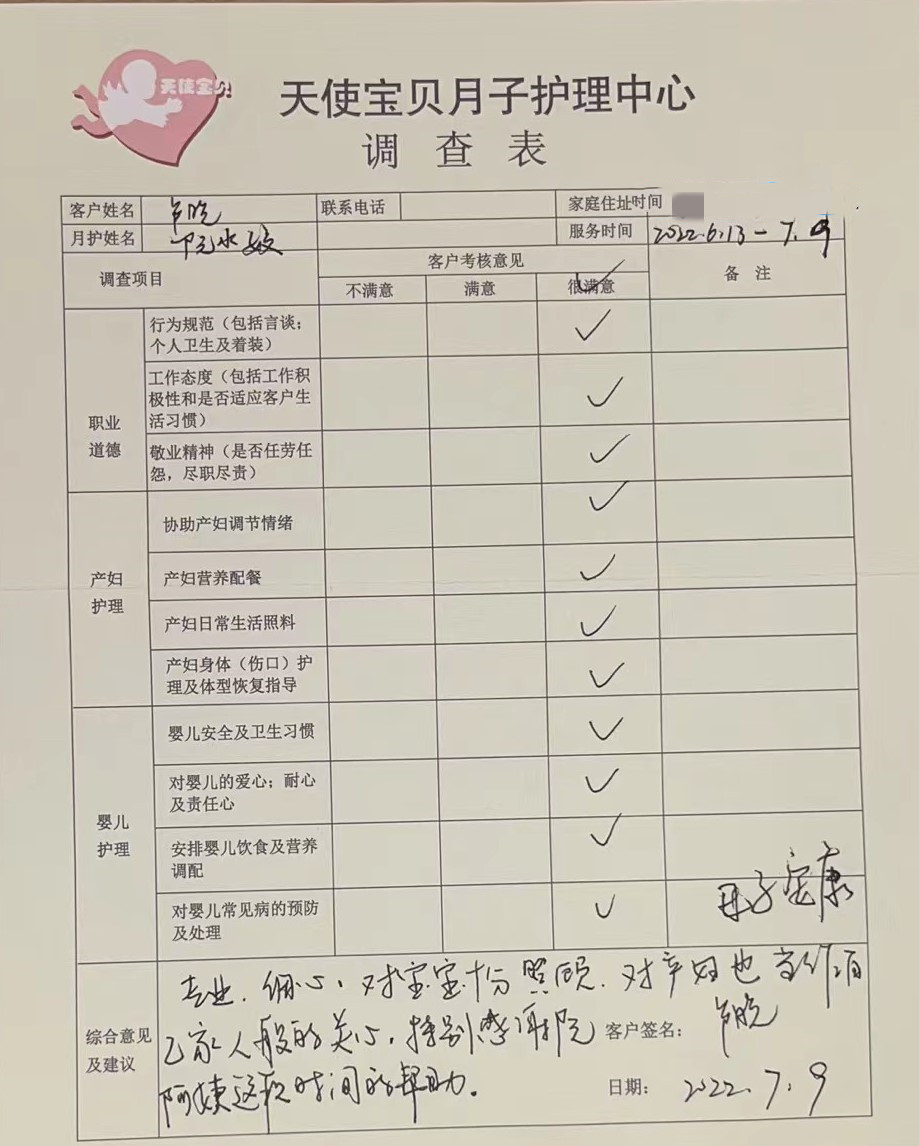 天使宝贝
天使宝贝月子护理中心
调查表
客户姓名 联系电话 家庭住址时间
月护姓名 服务时间 2022.6.13-7.9
调查项目 客户考核意见 备注
不满意 满意 很满意
职业道德
行为规范（包括言谈；
个人卫生及着装）
工作态度（包括工作积
极性和是否适应客户生
活习惯）
敬业精神（是否任劳任
怨，尽职尽责）
产妇护理
协助产妇调节情绪
产妇营养配餐
产妇日常生活照料
产妇身体（伤口）护
理及体型恢复指导
婴儿护理
婴儿安全及卫生习惯
对婴儿的爱心；耐心
及责任心
安排婴儿饮食及营养
调配
对婴儿常见病的预防
及处理
母子安康
综合意见及建议
专业、细心，对宝宝十分照顾，对产妇也当作自
己家人般的关心，特别感谢 客户签名：
阿姨这段时间的帮助。 日期： 2022.7.9